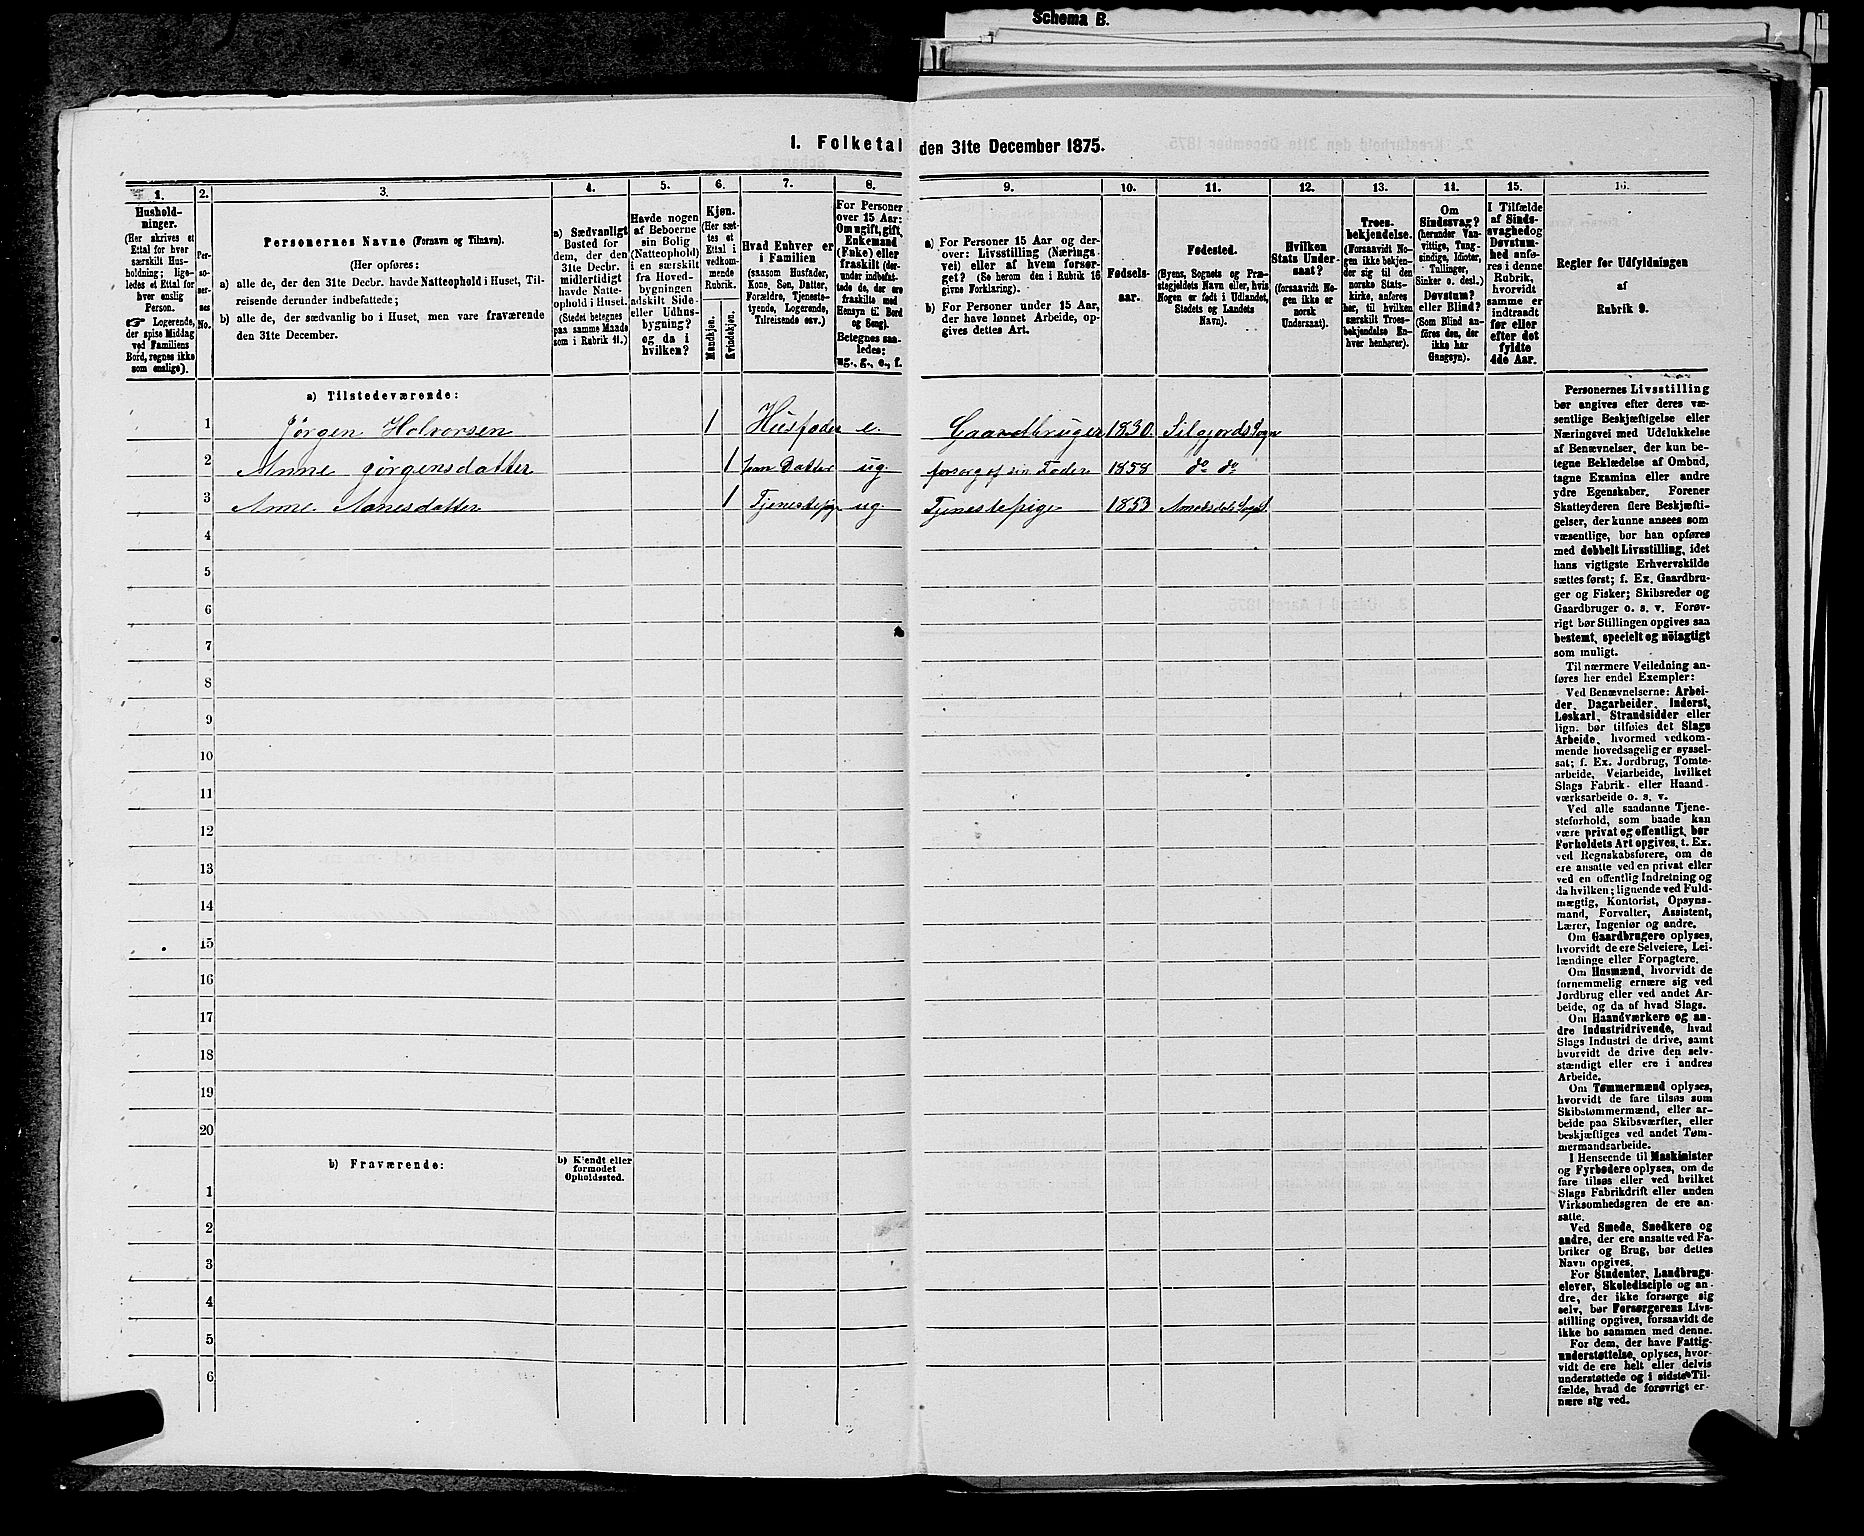 Schema B.
1. Folketal den 31te December 1875.
1. 2. 3. 4. 5. 6. 7. 8. 9. 10. 11. 12. 13. 14. 15. 16.
Hushold-
ninger.
(Her skrives et
Ettal for hver
særskilt Hus-
holdning; lige-
ledes et Ettal for
hver enslig
Person.
☞ Logerende,
der spise Middag
ved Familiens
Bord, regnes ikke
som enslige).
Per-
so-
ner-
nes
No.
Personernes Navne (Fornavn og Tilnavn).
(Her opføres:
a) alle de, der den 31te Decbr. havde Natteophold i Huset, Til-
reisende derunder indbefattede;
b) alle de, der sædvanlig bo i Huset, men vare fraværende
den 31te December.
a) Sædvanligt
Bosted for
dem, der den
31te Decbr.
midlertidigt
havde Natte-
ophold i Huset.
(Stedet betegnes
paa samme Maade
som i Rubrik 11.)
Havde nogen
af Beboerne
sin Bolig
(Natteophold)
i en særskilt
fra Hoved-
bygningen
adskilt Side-
eller Udhus-
bygning?
og da i
hvilken?
Kjøn.
(Her sæt-
tes et
Ettal i
vedkom-
mende
Rubrik.
Mandkjøn.
Kvindekjøn.
Hvad Enhver er
i Familien
(saasom Husfader,
Kone, Søn, Datter,
Forældre, Tjeneste-
tyende, Logerende,
Tilreisende osv.)
For Personer
over 15 Aar:
Om ugift, gift,
Enkemand
(Enke) eller
fraskilt (der-
under indbefat-
tede de, der ere
fraskilte med
Hensyn til Bord
og Seng).
Betegnes saa-
ledes:
ug., g., e., f.
a) For Personer 15 Aar og der-
over: Livsstilling (Nærings-
vei) eller af hvem forsør-
get? (Se herom den i Rubrik 16
givne Forklaring).
b) For Personer under 15 Aar,
der have lønnet Arbeide, op-
gives dettes Art.
Fødsels-
aar.
Fødested.
(Byens, Sognets og Præ-
stegjeldets Navn eller, hvis
Nogen er født i Udlandet,
Stedets og Landets
Navn).
Hvilken
Stats Under-
saat?
(forsaavidt No-
gen ikke er
norsk
Undersaat).
Troes-
bekjendelse.
(Forsaavidt No-
gen ikke bekjen-
der sig til den
norske Stats-
kirke, anføres
her, til hvilken
særskilt Troes-
bekjendelse En-
hver henhører).
Om
Sindssvag?
(herunder Van-
vittige, Tung-
sindige, Idioter,
Tullinger,
Sinker o. desl.)
Døvstum?
eller Blind?
(Som Blind an-
føres den, der
ikke har
Gangsyn).
I Tilfælde
af Sinds-
svaghed og
Døvstum-
hed anfø-
res i denne
Rubrik,
hvorvidt
samme er
indtraadt
før eller
efter det
fyldte
4de Aar.
Regler for Udfyldningen
af
Rubrik 9.
a) Tilstedeværende:
1 Jörgen Holvorsen 1 Husfader e. Gaardbruger 1830. Silgjords Sogn
2 Anne Jörgensdatter 1 hans Datter ug. forsørg af sin Fader 1858 do do
3 Anne Aanesdatter 1 Tjenestepige ug. Tjenestepige 1853
4
5
6
7
8
9
10
11
12
13
14
15
16
17
18
19
20
b) Fraværende:
b) Kjendt eller
formodet
Opholdssted.
1
2
3
4
5
6
Personernes Livsstilling
bør angives efter deres væ-
sentlige Beskjæftigelse eller
Næringsvei med Udelukkelse
af Benævnelser, der kun be-
tegne Beklædelse af Ombud,
tagne Examina eller andre
ydre Egenskaber. Forener
Skatteyderen flere Beskjæfti-
gelser, der kunne ansees som
væsentlige, bør han opføres
med dobbelt Livsstilling, idet
hans vigtigste Erhvervskilde
sættes først; f. Ex. Gaardbru-
ger og Fisker; Skibsreder og
Gaardbruger o. s. v. Forøv-
rigt bør Stillingen opgives saa
bestemt, specielt og nöiagtigt
som muligt.
Til nærmere Veiledning an-
føres her endel Exempler:
Ved Benævnelserne: Arbei-
der, Dagarbeider, Inderst,
Løskarl, Strandsidder eller
lign. bør tilføies det Slags
Arbeide, hvormed vedkom-
mende hovedsagelig er syssel-
sat; f. Ex. Jordbrug, Tomte-
arbeide, Veiarbeide, hvilket
Slags Fabrik- eller Haand-
værksarbeide o. s. v.
Ved alle saadanne Tjene-
steforhold, som baade kan
være privat og offentligt, bør
Forholdets Art opgives, t. Ex.
ved Regnskabsførere, om de
ere ansatte ved en privat eller
ved en offentlig Indretning og
da hvilken; lignende ved Fuld-
mægtig, Kontorist, Opsyns-
mand, Forvalter, Assistent,
Lærer, Ingeniør og andre.
Om Gaardbrugere oplyses,
hvorvidt de ere Selveiere, Lei-
lændinge eller Forpagtere.
Om Husmænd, hvorvidt de
fornemmelig ernære sig ved
Jordbrug eller ved andet Ar-
beide, og da af hvad Slags.
Om Haandværkere og an-
dre Industridrivende, hvad
Slags Industri de drive, samt
hvorvidt de drive den selv-
stændigt eller ere i andres
Arbeide.
Om Tømmermænd oplyses,
hvorvidt de fare tilsøs som
Skibstømmermænd, eller ar-
beide paa Skibsværfter, eller
beskjæftiges ved andet Tøm-
mermandsarbeide.
I Henseende til Maskinister
og Fyrbødere oplyses, om de
fare tilsøs eller ved hvilket
Slags Fabrikdrift eller anden
Virksomhedsgren de ere an-
satte.
Ved Smede, Snedkere og
andre, der ere ansatte ved Fa-
briker og Brug, bør dettes
Navn opgives.
For Studenter, Landbrugs-
elever, Skoledisciple og an-
dre, der ikke forsørge sig
selv, bør Forsørgerens Livs-
stilling opgives, forsaavidt de
ikke bo sammen med denne.
For dem, der have Fattig-
understøttelse, oplyses, hvor-
vidt de ere helt eller delvis
understøttede og i sidste Til-
fælde, hvad de forøvrigt er-
nære sig ved.